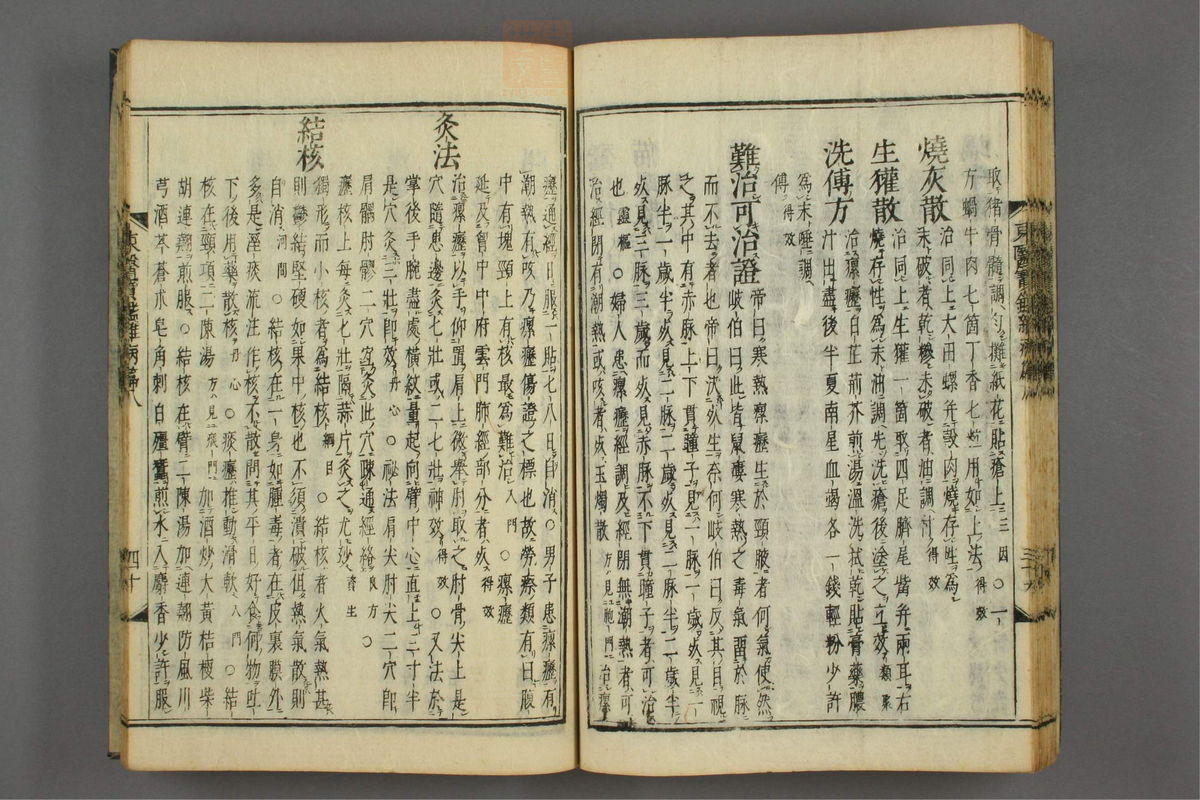 取猪骨髓調勻攤紙花貼瘡上三因○一
方蝸牛肉七箇丁香七粒用如上法得效
燒灰散 治同上大田螺并殼肉燒存性爲
末破者乾糝未破者油調付得效
生玃散 治同上生玃一箇取四足臍尾觜弁兩耳右
燒存性爲末油調先洗瘡後塗之立效類聚
洗傅方 治瘰癧白芷荊芥煎湯溫洗拭乾貼膏藥膿
汁出盡後半夏南星血竭各一錢輕粉少許
爲末唾調
傅得效
難治可治證 帝曰寒熱瘰癧生於頸腋者何氣使然
岐伯曰此皆鼠瘻寒熱之毒氣留於脈
而不去者也帝曰決死生奈何岐伯曰反其目視
之其中有赤脈上下貫瞳子見一脈一歲死見一
脈半一歲半死見二脈二歲死見二脈半二歲半
死見三脈三歲而死見赤脈不下貫瞳子者可治
也靈樞○婦人患瘰癧經調及經閉無潮熱者可
治經閉有潮熱或咳者死玉燭散方見胞門治瘰
東醫寶鑑雜病篇八 三十九
癧通經日服一貼七八日自消○男子患瘰癧有
潮熱或咳乃瘰癧傷證之標也故勞瘵類有曰腹
中有塊頸上有核最爲難治入門○瘰癧
延及胷中中府雲門肺經部分者死得效
灸法 治瘰癧以手仰置肩上微擧肘取之肘骨尖上是
穴隨患邊灸七壯或二七壯神效得效○又法於
掌後手腕盡處橫紋量起向臂中心直上三寸半
是穴灸三壯卽效丹心○祕法肩尖肘尖二穴卽
肩髃肘髎二穴灸此穴疎通經絡良方○
癧核上每灸七壯隔蒜片灸之尤妙資生
結核 獨形而小核者爲結核綱目○結核者火氣熱甚
則鬱結堅硬如果中核也不須潰破但熱氣散則
自消河間○結核在一身如腫毒者在皮裏膜外
多是溼痰流注作核不散問其平日好食何物吐
下後用藥散核丹心○痰癧推動滑軟入門○結
核在頸項二陳湯方見痰門加酒炒大黃桔梗柴
胡連翹煎服○結核在臂二陳湯加連翹防風川
芎酒芩蒼朮皂角刺白殭蠶煎水入麝香少許服
東醫寶鑑雜病篇八 四十